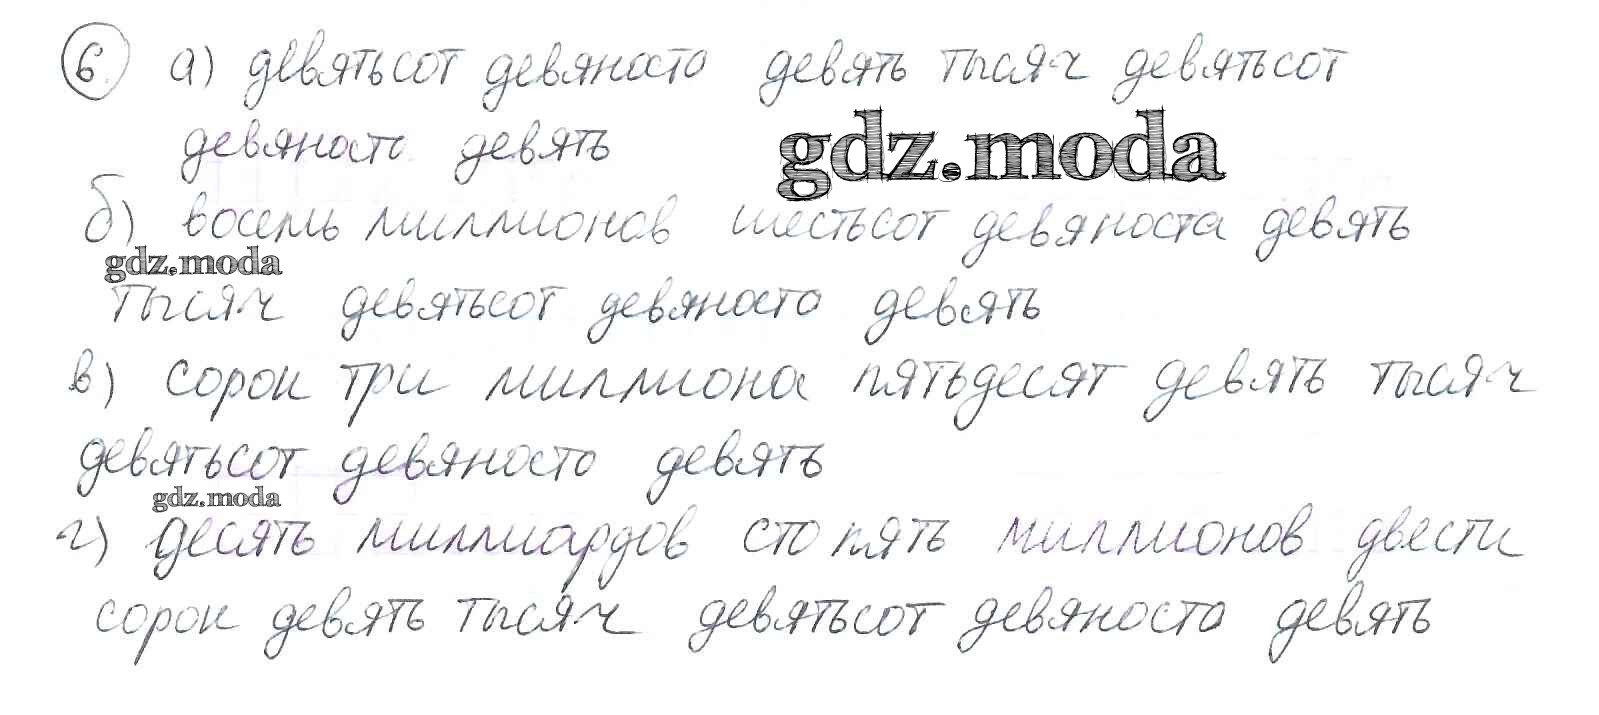 6. а) девятьсот девяносто девять тысяч девятьсот
gdz.moda
девяносто девять
б) восемь миллионов шестьсот девяноста девять
gdz.moda
тысяч девятьсот девяносто девять
в) сорок три миллиона пятьдесят девять тысяч
девятьсот девяносто девять
gdz.moda
г) десять миллиардов сто пять миллионов двести
сорок девять тысяч девятьсот девяноста девять